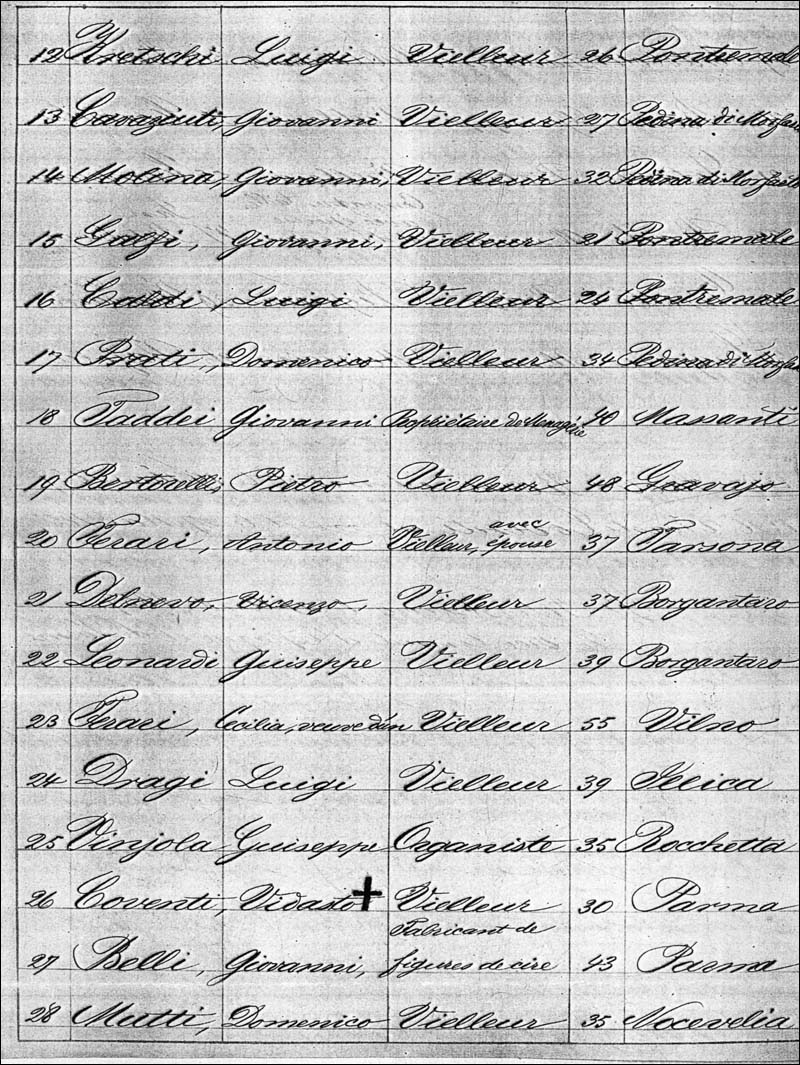 12 Kretschi Luigi Vielleur 26 Pontremale
13 Cavaziuti, Giovanni Vielleur 27 Pedina di
14 Molina, Giovanni, Vielleur 32 Pedina di
15 Galfi, Giovanni, Vielleur 21 Pontremale
16 Caddi, Luigi Vielleur 24 Pontremale
17 Prati, Domenico Vielleur 34 Pedina di
18 Taddei Giovanni Propriétaire de Menagerie 40 Massanti
19 Bertorelli, Pietro Vielleur 48 Gravajo
avec
20 Ferari, Antonio Vielleur, épouse 37 Tarsona
21 Delnevo, Vicenzo, Vielleur 37 Borgantaro
22 Leonardi Guiseppe Vielleur 39 Borgantaro
23 Ferari, Cecilia, veuve d'un Vielleur 55 Vilno
24 Dragi Luigi Vielleur 39 Illica
25 Vinjola Guiseppe Organiste 35 Rocchetta
26 Coventi, Vidasto Vielleur 30 Parma
Fabricant de
27 Belli, Giovanni, figures de cire 43 Parma
28 Mutti, Domenico Vielleur 35 Nocevelia